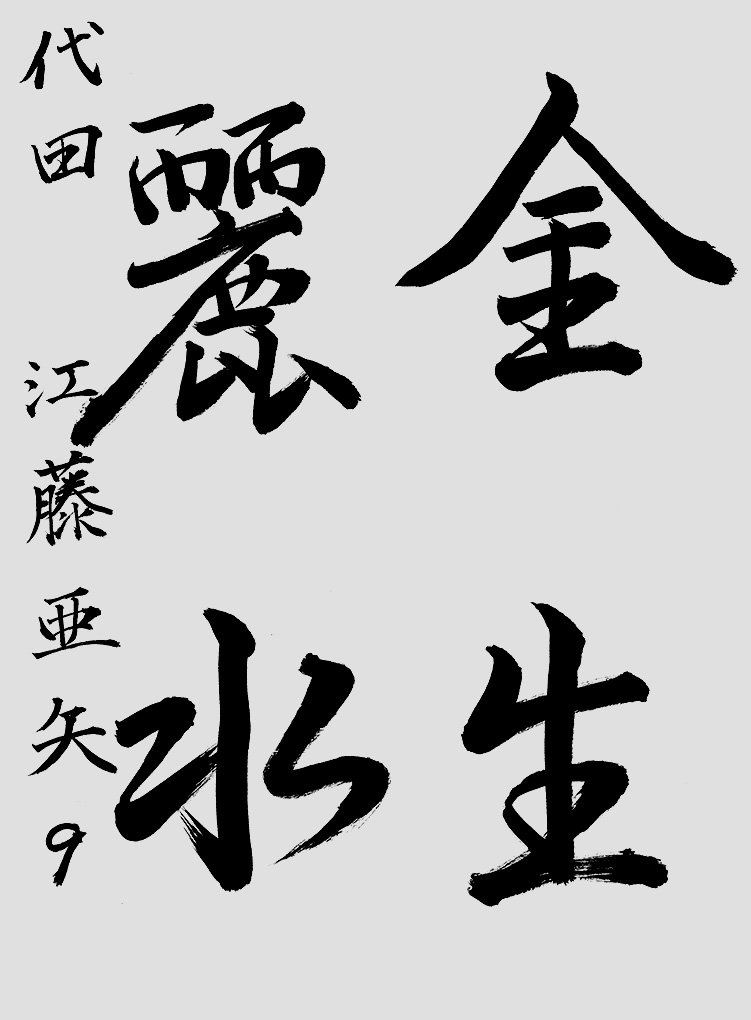 金生
麗水
代田 江藤亜矢9